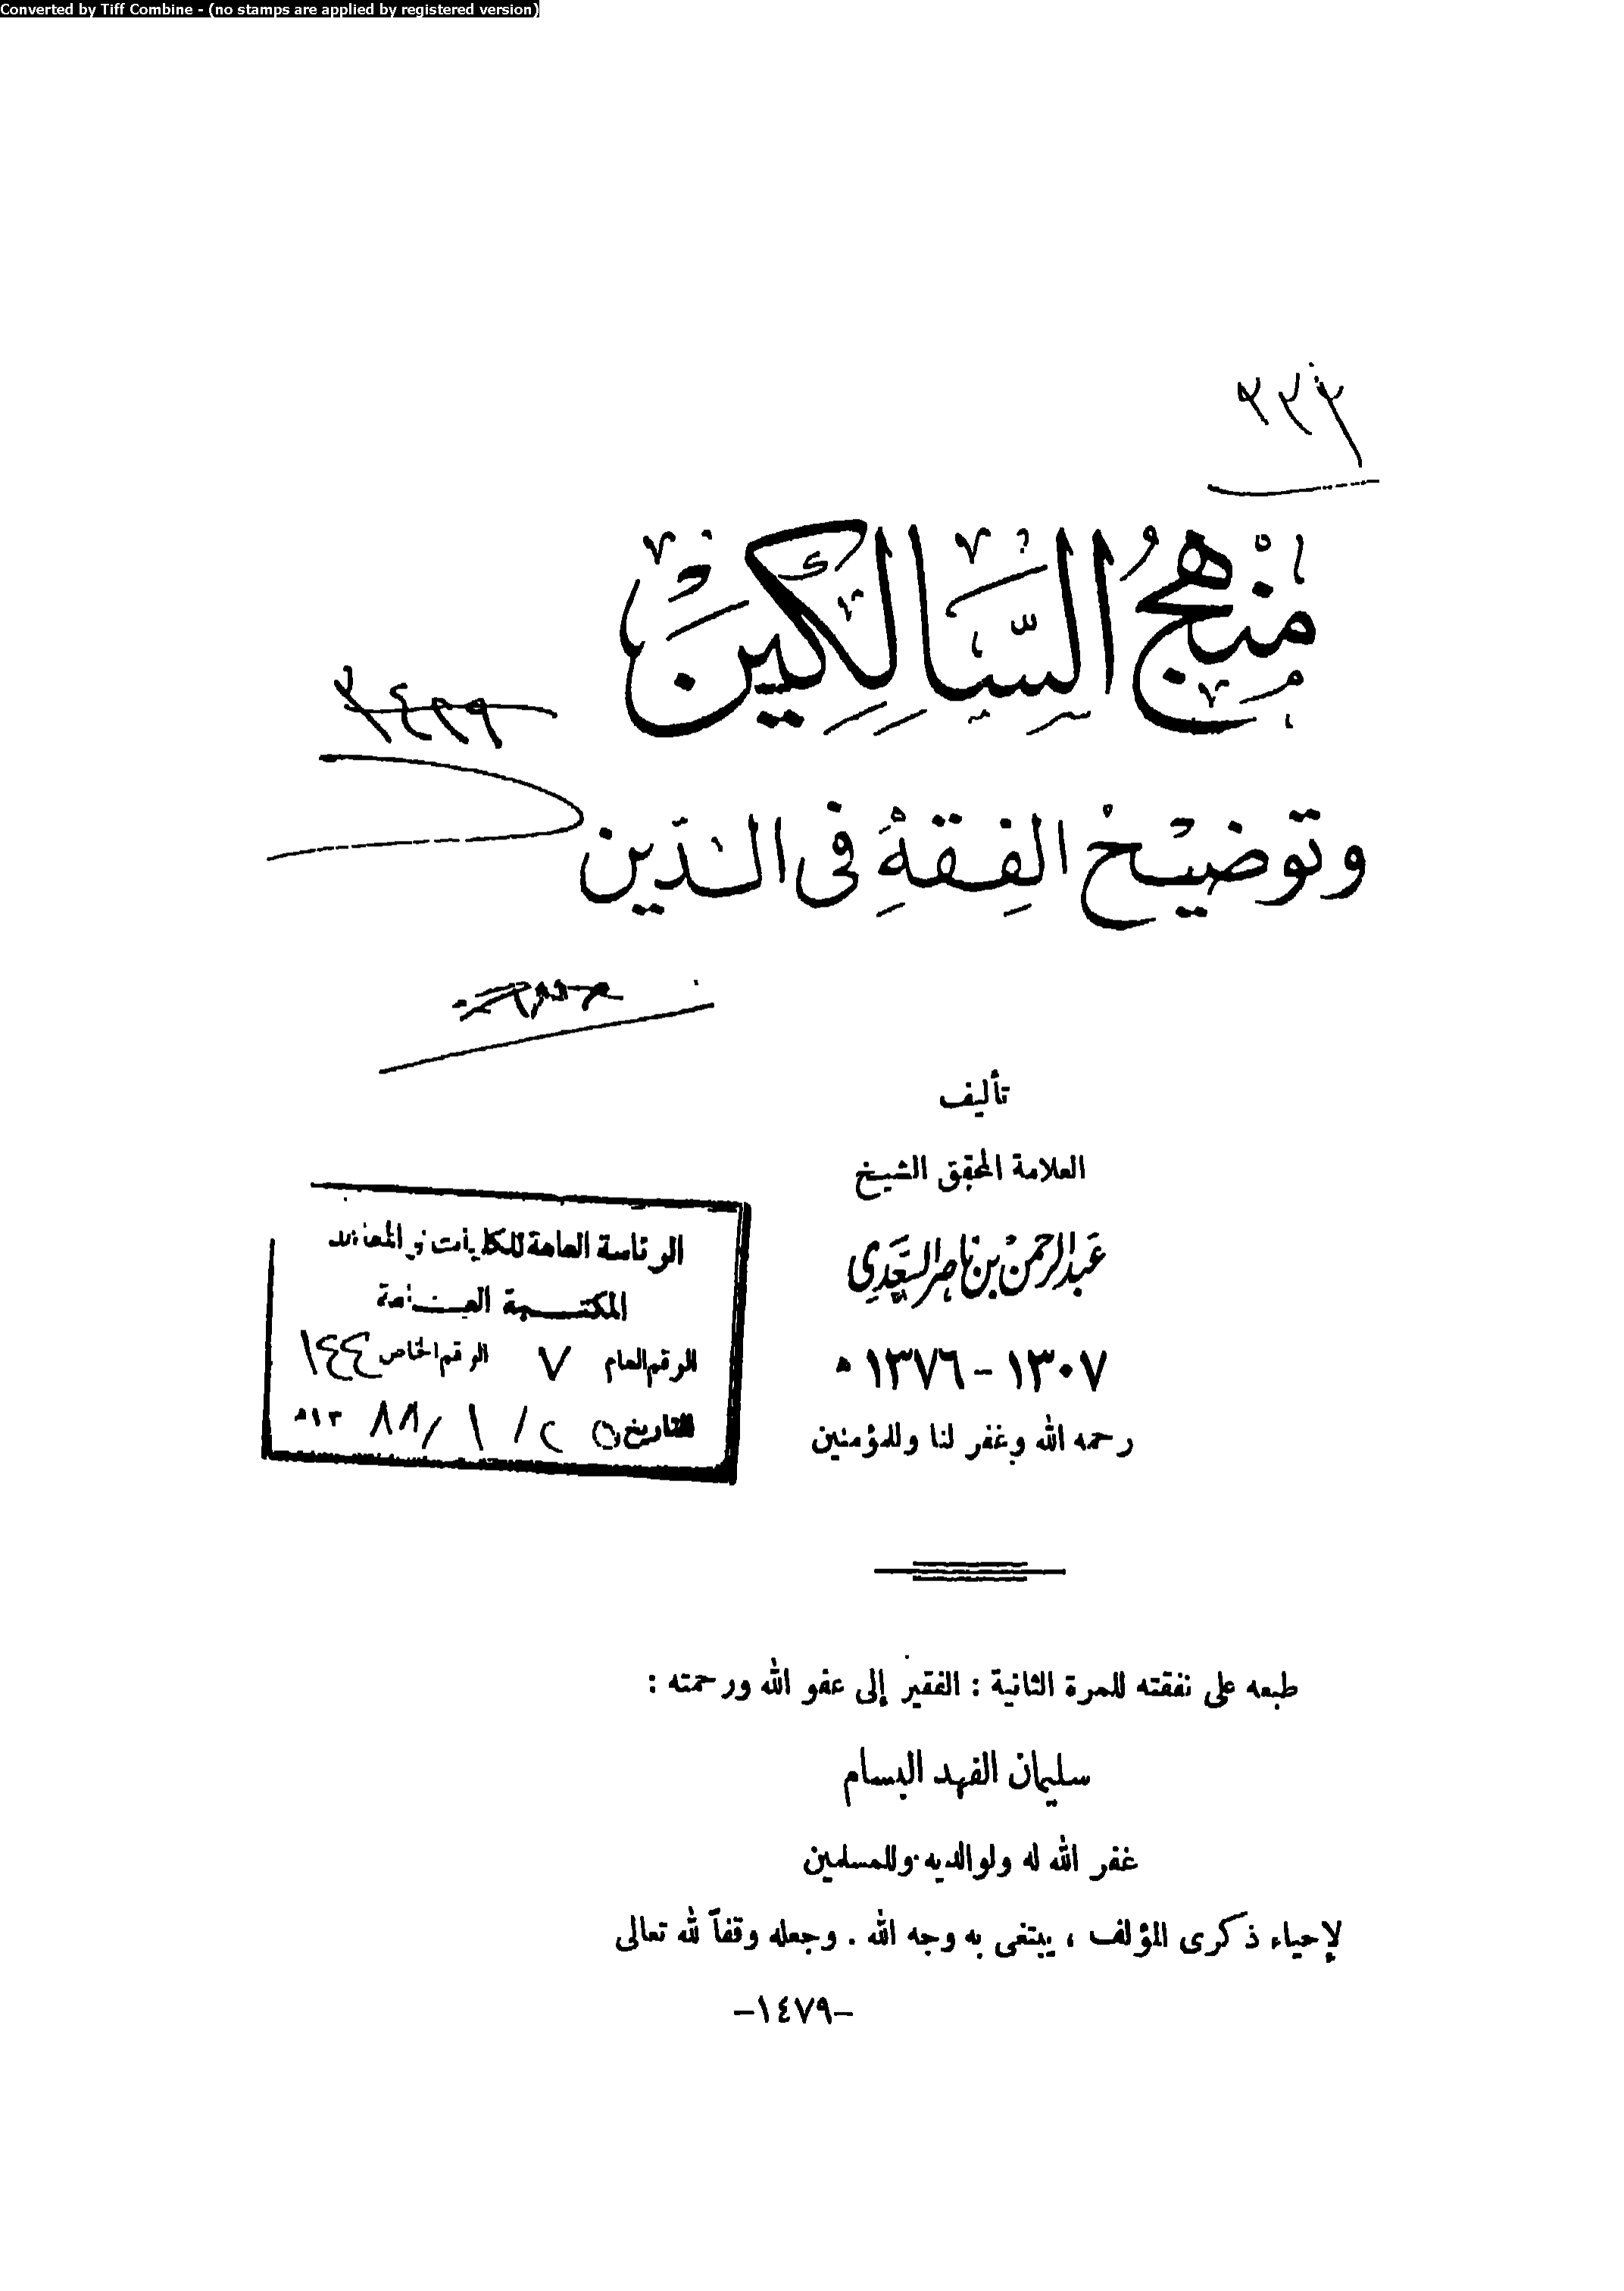 Converted by Tiff Combine - (no stamps are applied by registered version)
منهج السالكين
وتوضيح الفقه فى الدين
تأليف
العلامة المحقق الشيخ
عبد الرحمن بن ناصر السعدي
١٣٠٧ - ١٣٧٦ ه
رحمه الله وغفر لنا وللمؤمنين
الرئاسة العامة للكليات والمعاهد
المكتبة العامة
الرقم العام ٧ الرقم الخاص ١٤٤
التاريخ ٢٥ / ١ / ٨٨ ١٣ه
طبعه على نفقته للمرة الثانية : الفقير إلى عفو الله ورحمته :
سليمان الفهد البسام
غفر الله له ولوالديه وللمسلمين
لإحياء ذكرى المؤلف ، يبتغى به وجه الله . وجعله وقفاً لله تعالى
-١٤٧٩-